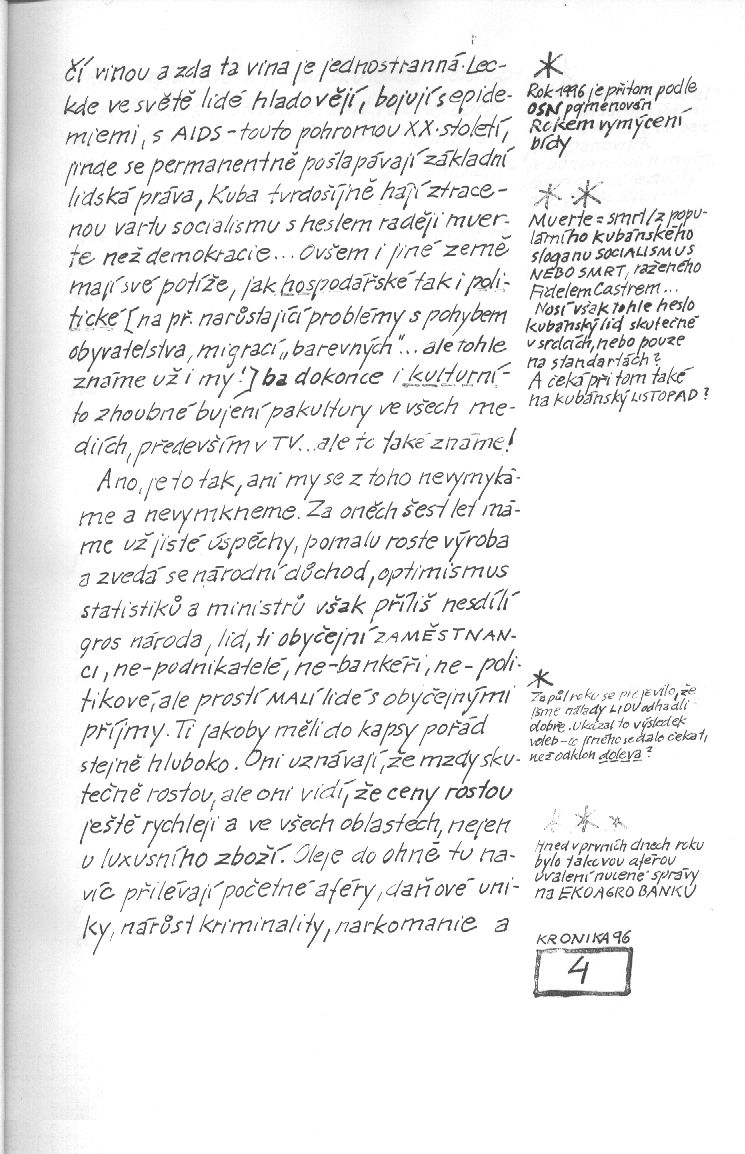 čí vinou a zda ta vina je jednostranná. Lec-
kde ve světě lidé hladovějí, bojují s epide-
miemi, s AIDS - touto pohromou XX. století,
jinde se permanentně pošlapávají základní
lidská práva, Kuba tvrdošíjně hájí ztrace-
nou vartu socialismu s heslem raději muer-
te než demokracie... Ovšem i jiné země
mají své potíže, jak hospodářské tak i poli-
tické [na př. narůstající problémy s pohybem
obyvatelstva, migrací „barevných"... ale tohle
známe už i my!] ba dokonce i kulturní -
to zhoubné bujení pakultury ve všech me-
diích, především v TV... ale to také známe!
Ano, je to tak, ani my se z toho nevymyká-
me a nevymkneme. Za oněch šest let má-
me už jisté úspěchy, pomalu roste výroba
a zvedá se národní důchod, optimismus
statistiků a ministrů však příliš nesdílí
gros národa, lid, ti obyčejní ZAMĚSTNAN-
CI, ne-podnikatelé, ne-bankéři, ne-poli-
tikové, ale prostí MALÍ lidé s obyčejnými
příjmy. Ti jakoby měli do kapsy pořád
stejně hluboko. Oni uznávají, že mzdy sku-
tečně rostou, ale oni vidí, že ceny rostou
ještě rychleji a ve všech oblastech, nejen
u luxusního zboží. Oleje do ohně tu na-
víc přilévají početné aféry, daňové úni-
ky, nárůst kriminality, narkomanie a
*
Rok 1996 je přitom podle
OSN pojmenován
Rokem vymýcení
bídy
* *
Muerte = smrt / z popu-
lárního kubánského
sloganu SOCIALISMUS
NEBO SMRT, raženého
Fidelem Castrem...
Nosí však tohle heslo
kubánský lid skutečně
v srdcích, nebo pouze
na standartách?
A čeká při tom také
na kubánský LISTOPAD?
*
Za půl roku se projevilo, že
jsme nálady LIDU odhadli
dobře. Ukázal to výsledek
voleb - co jiného se dalo čekat,
než odklon doleva?
* * *
Hned v prvních dnech roku
bylo takovou aférou
uvalení nucené správy
na EKOAGROBANKU
KRONIKA 96
4